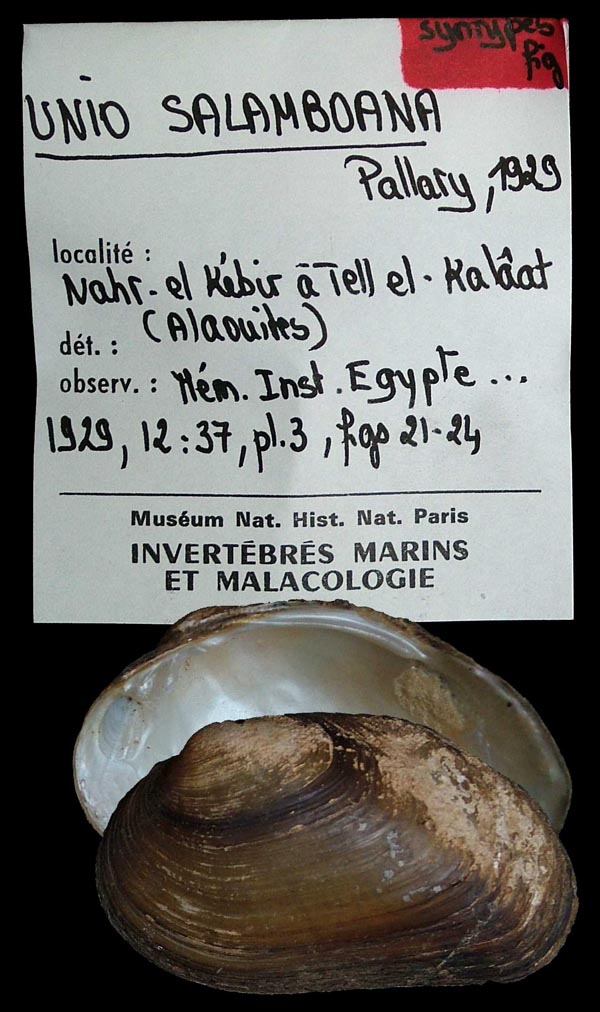 syntypes
fig
UNIO SALAMBOANA
Pallary, 1929
localité :
Nahr-el Kébir à Tell el-Kalâat
(Alaouites)
dét. :
observ. : Mém. Inst. Egypte ...
1929, 12:37, pl.3, figs 21-24
Muséum Nat. Hist. Nat. Paris
INVERTÉBRÉS MARINS
ET MALACOLOGIE